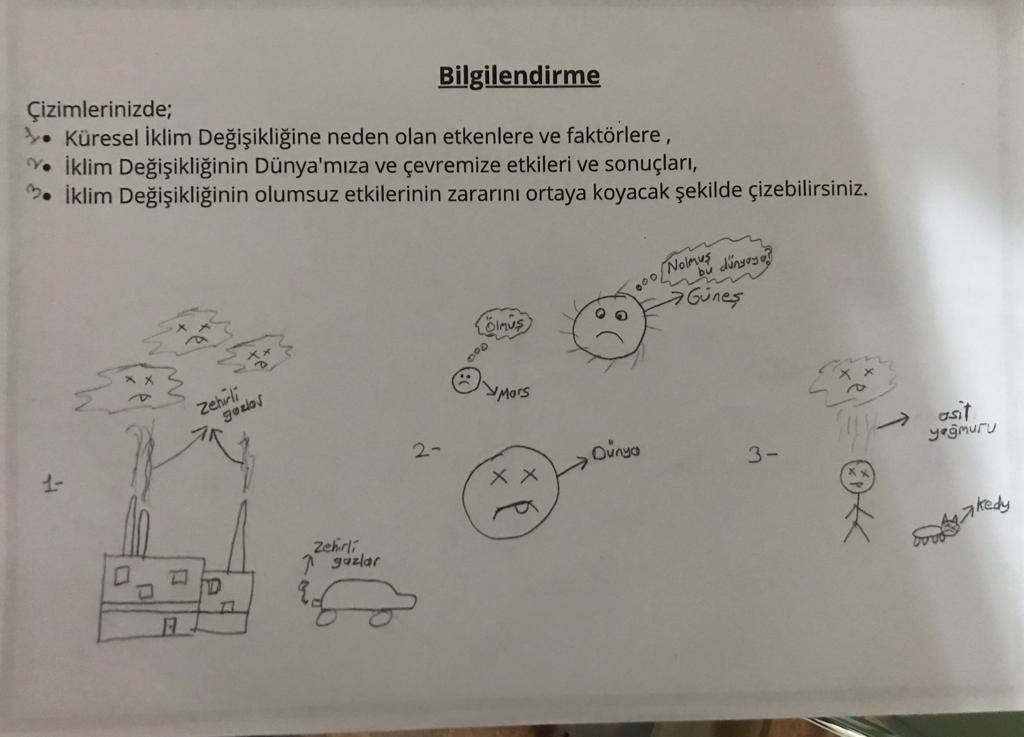 Bilgilendirme
Çizimlerinizde;
1 • Küresel İklim Değişikliğine neden olan etkenlere ve faktörlere ,
2 • İklim Değişikliğinin Dünya'mıza ve çevremize etkileri ve sonuçları,
3 • İklim Değişikliğinin olumsuz etkilerinin zararını ortaya koyacak şekilde çizebilirsiniz.
1-
Zehirli
gazlar
Zehirli
gazlar
2-
Ölmüş
Mars
Nolmuş
bu dünyaya?
Güneş
Dünya
3-
asit
yağmuru
kedy